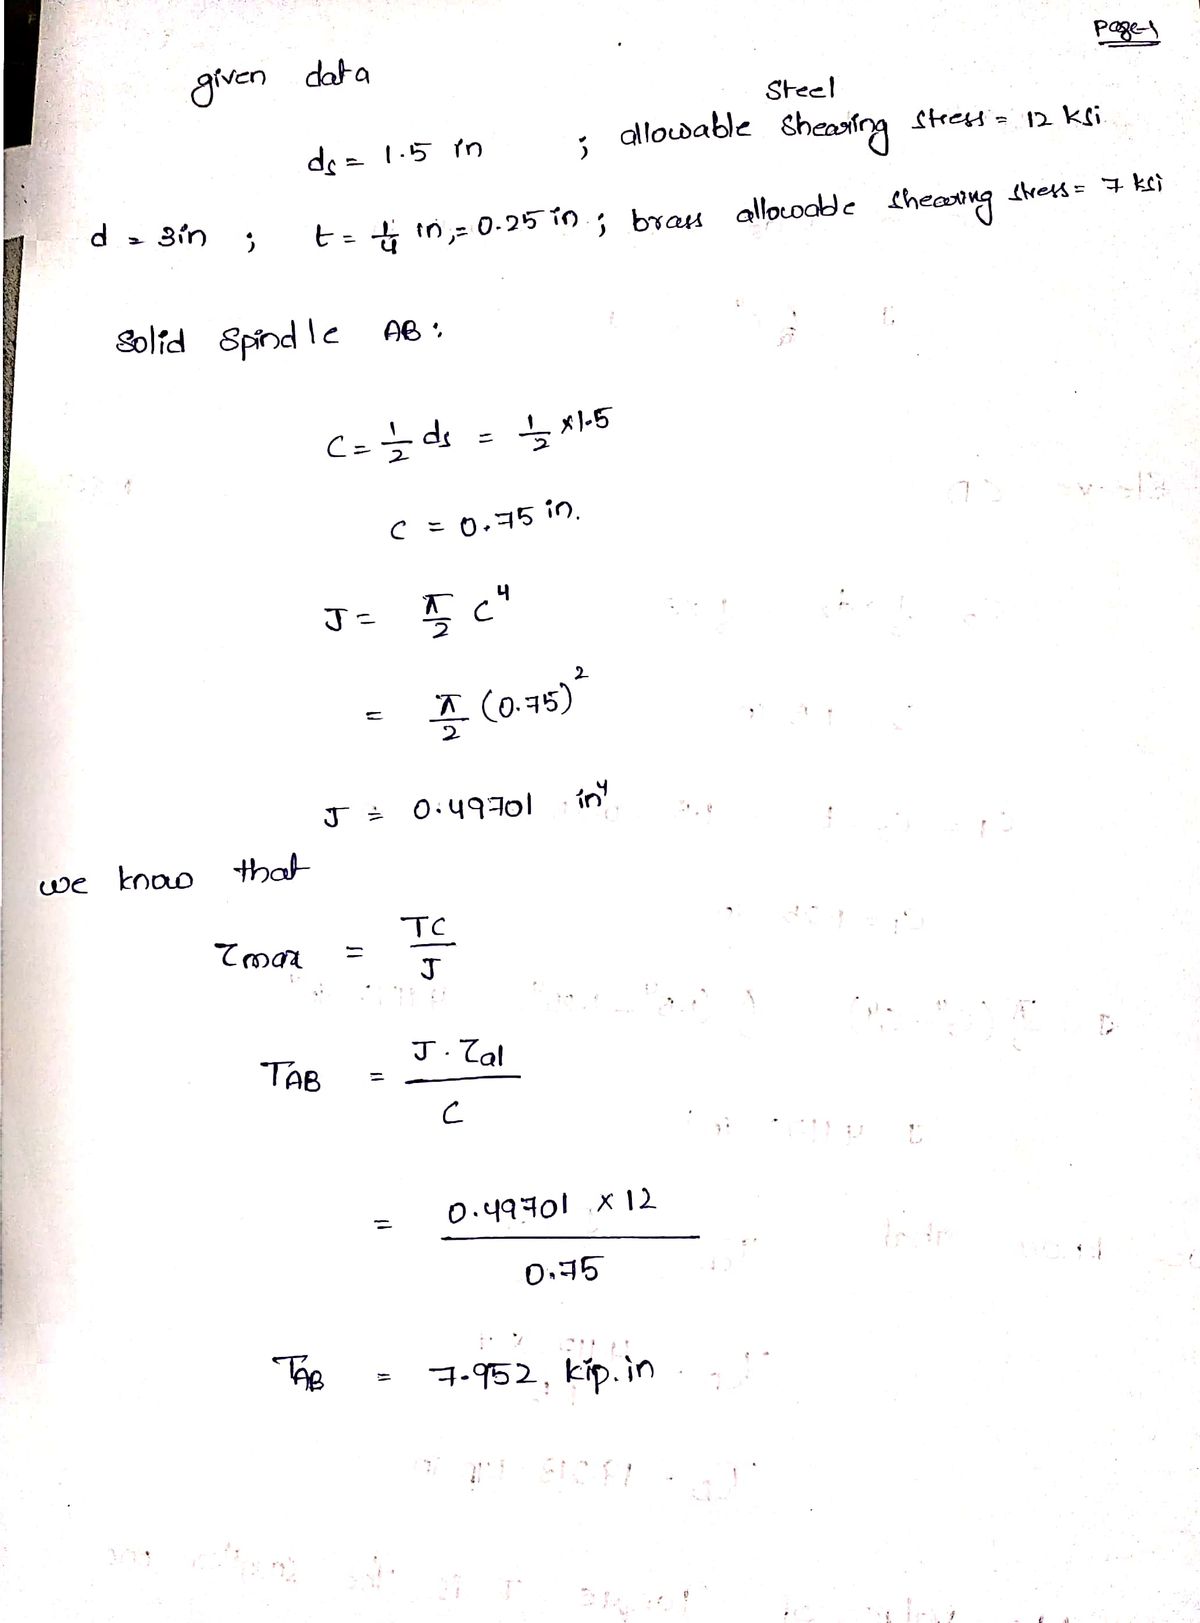 Page-1
given data
ds = 1.5 in ; allowable Steel shearing stress = 12 ksi.
d = 3in ; t = 1/4 in, = 0.25 in ; brass allowable shearing stress = 7 ksi
Solid Spindle AB :
C = 1/2 ds = 1/2 × 1.5
C = 0.75 in.
J = π/2 C⁴
= π/2 (0.75)²
J = 0.49701 in⁴
we know that
τmax = TC/J
TAB = J . τal / C
= 0.49701 × 12 / 0.75
TAB = 7.952, kip.in